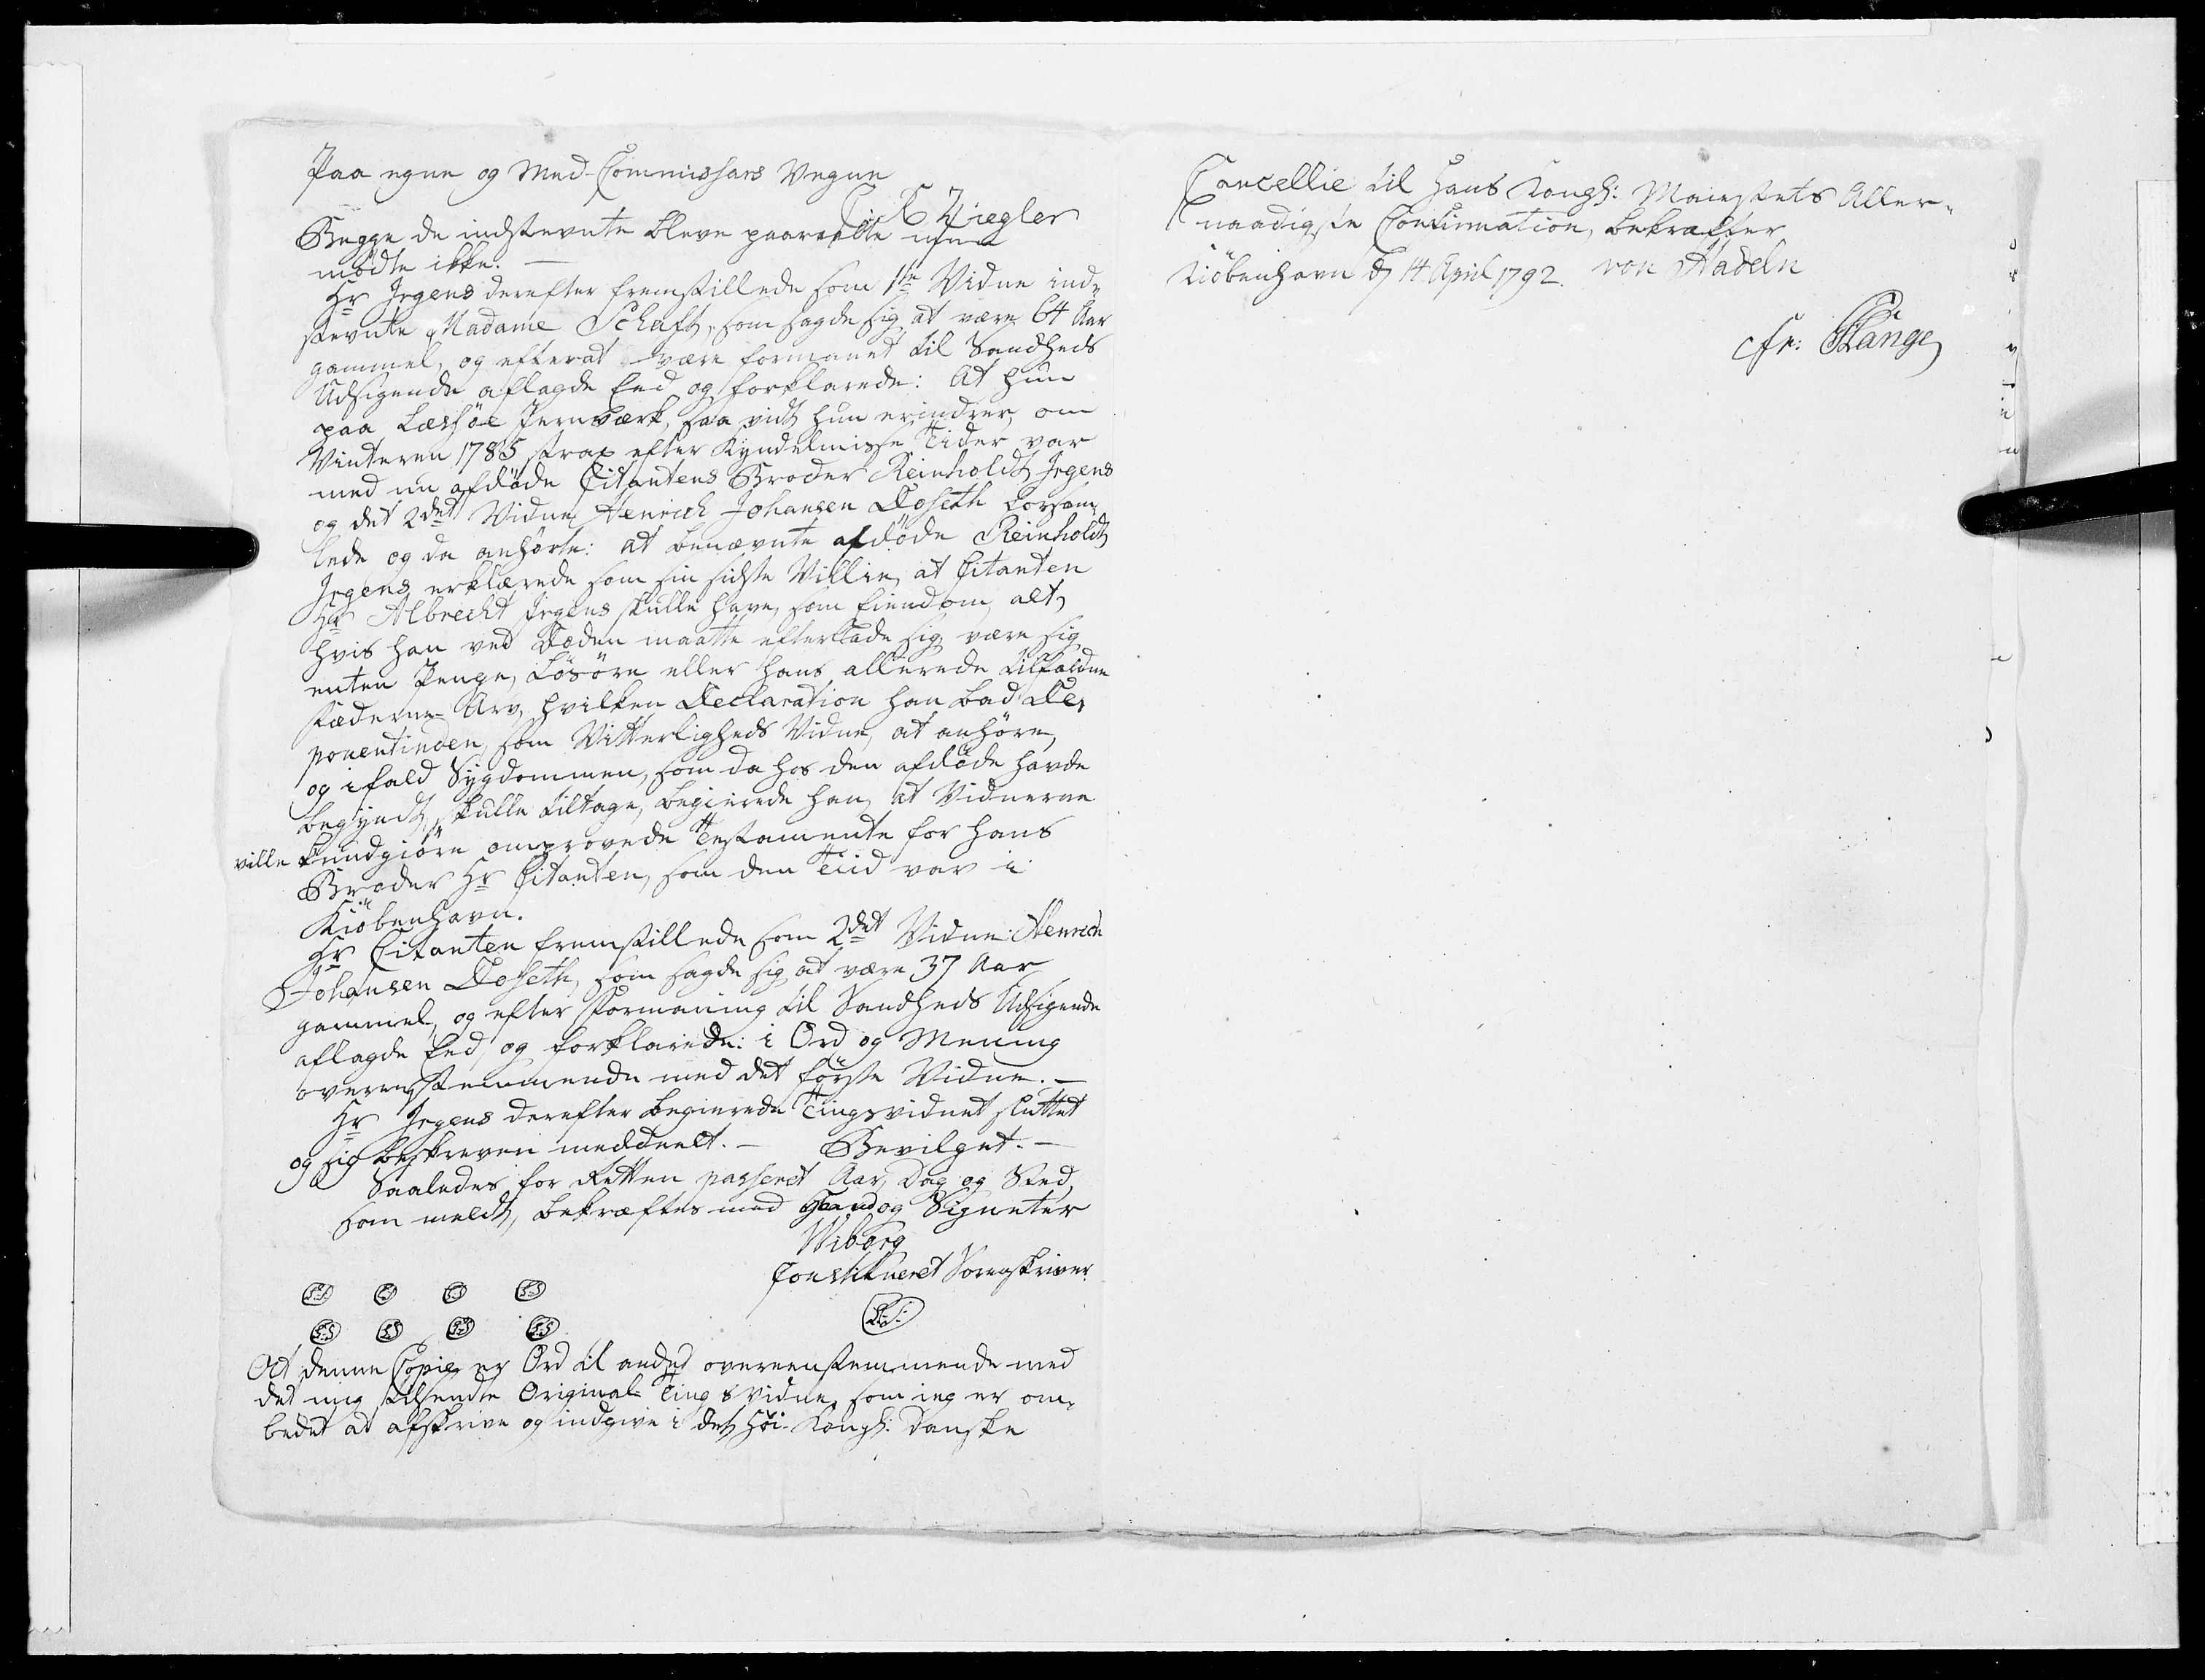 Paa egne og Med-Commissars Vegne
C: C Ziegler
Begge de indstevnte bleve paaraabte men
mødte ikke. —
Hr Irgens derefter fremstillede som 1te Vidne ind-
stevnte Madame Schaft, som sagde sig at være 64 Aar
gammel, og efterat være formanet til Sandheds
Udsigende aflagde Eed og forklarede: At hun
paa Lessøe Jernværk, saa vidt hun erindrer, om
Vinteren 1785 strax efter Kyndelmisse Tider var
med nu afdøde Citantens Broder Reinholdt Irgens
og det 2det Vidne Henrich Johansen Doseth forsam-
lede og da anhørte: at benævnte afdøde Reinholdt
Irgens erklærede som sin sidste Villie, at Citanten
Hr Albrecht Irgens skulle have, som Eiendom, alt,
hvis han ved Døden maatte efterlade sig, være sig
enten Penge, Løsøre eller hans allerede tilfaldne
Fæderne-Arv, hvilken Declaration han bad De-
ponentinden, som Vitterligheds Vidne, at anhøre,
og ifald Sygdommen, som da hos den afdøde havde
begyndt, skulle tiltage, begierede han, at Vidnerne
ville kundgiøre omprovede Testamente for hans
Broder Hr Citanten, som den Tiid var i
Kiøbenhavn.
Hr Citanten fremstillede som 2det Vidne: Henrich
Johansen Doseth, som sagde sig at være 37 Aar
gammel, og efter Formaning til Sandheds Udsigende
aflagde Eed, og forklarede: i Ord og Mening
overensstemmende med det første Vidne. —
Hr Irgens derefter begierede Tingsvidnet sluttet
og sig beskreven meddeelt. — Bevilget. —
Saaledes for Retten passeret Aar, Dag og Sted,
som meldt, bekræftes med Haand og Signeter
Wiborg
Constitueret Sorenskriver
L:S: L:S: L:S: L:S:
L:S: L:S: L:S: L:S: L:S:
At denne Copie er Ord til andet overeenstemmende med
det mig tilsendte Original-Tingsvidne, som ieg er om-
bedet at afskrive og indgive i det Høi-Kongl: Danske
Cancellie til Hans Kongl: Maiestets Aller-
naadigste Confirmation, bekræfter
Kiöbenhavn d 14 April 1792. von Hadeln
Fr: Stange